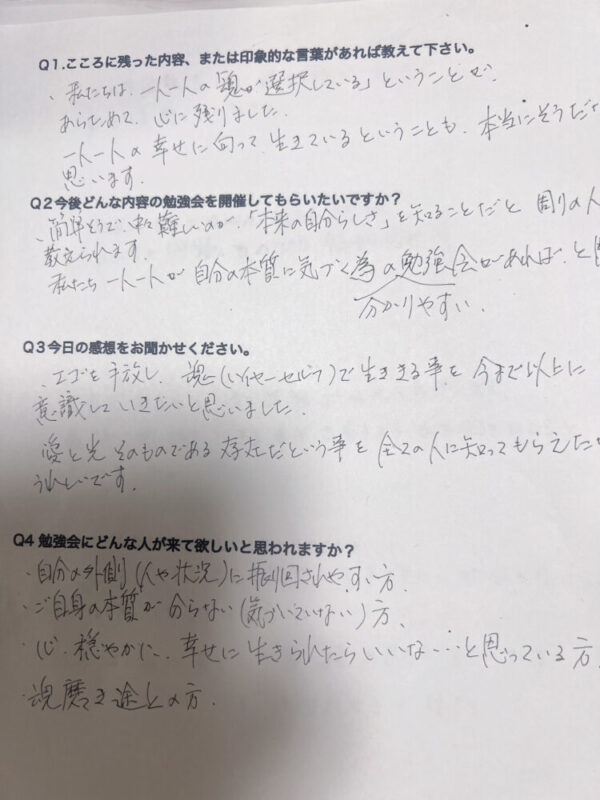 Q1.こころに残った内容、または印象的な言葉があれば教えて下さい。
・私たちは、一人一人の魂が選択している」ということで、
あらためて、心に残りました。
一人一人の幸せに向って生きているということも、本当にそうだな
思います。
Q2今後どんな内容の勉強会を開催してもらいたいですか？
・簡単そうで、中々難しいのが、「本来の自分らしさ」を知ることだと 周りの人
教えられます。
私たち一人一人が自分の本質に気づく為の勉強会があれば、と
分かりやすい、
Q3今日の感想をお聞かせください。
・エゴを手放し、魂(ハイヤーセルフ)で生ききる事を今まで以上に
意識していきたいと思いました。
愛と光そのものである存在だという事を全ての人に知ってもらえた
うれしいです。
Q4勉強会にどんな人が来て欲しいと思われますか？
・自分の外側(人や状況)に振り回されやすい方、
・ご自身の本質が分らない(気づいていない)方、
・心、穏やかに、幸せに生きられたらいいな…と思っている方、
・魂磨き途上の方、